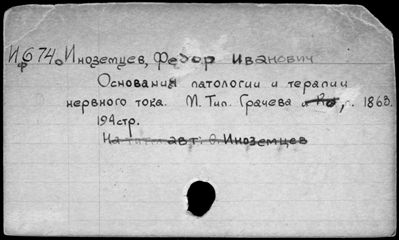 И674 Иноземцев, Федор Иванович
ф
Основания патологии и терапии
нервного тока. М. Тип. Грачева и Ко, г. 1863.
194стр.
На тит. авт: Ѳ. Иноземцев